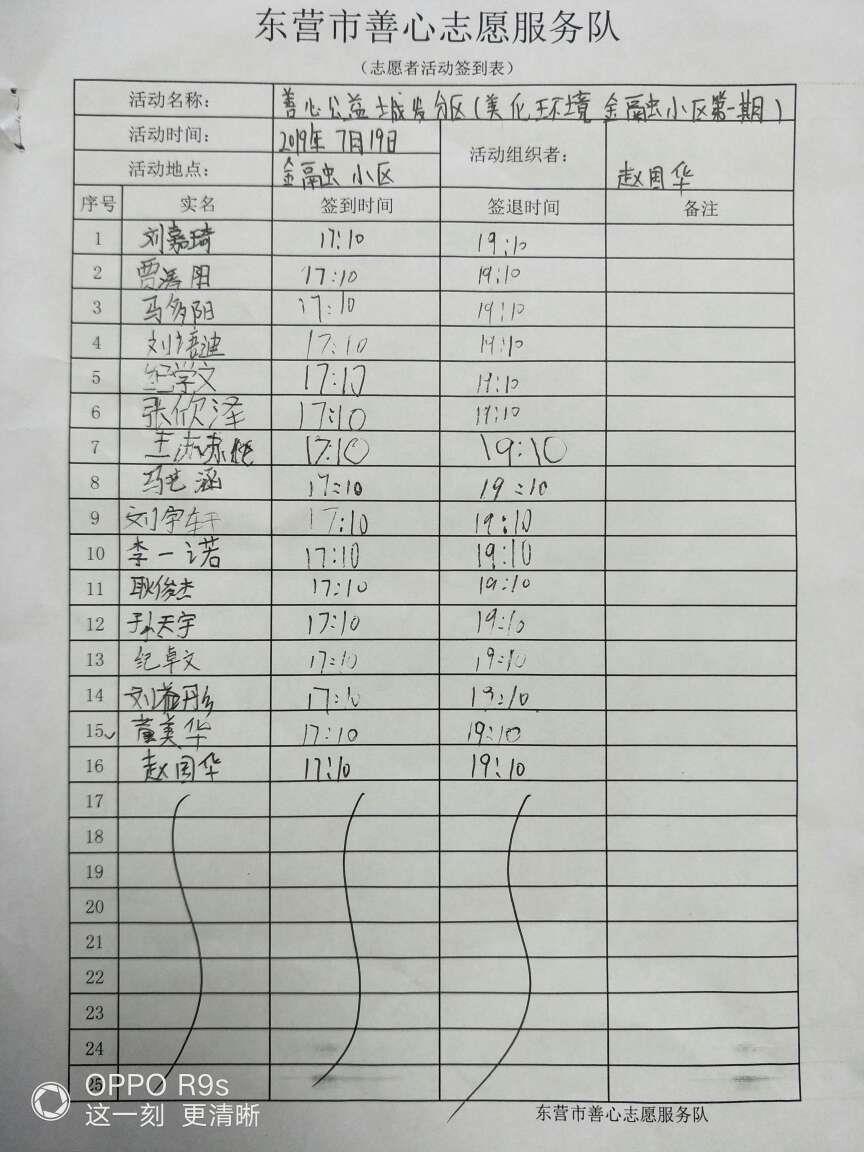 东营市善心志愿服务队
（志愿者活动签到表）
活动名称： 善心公益 城发分区（美化环境 金融小区第一期）
活动时间： 2019年7月19日 活动组织者： 赵国华
活动地点： 金融小区
序号 实名 签到时间 签退时间 备注
1 刘嘉琦 17:10 19:10
2 17:10 19:10
3 马多阳 17:10 19:10
4 刘培迪 17:10 19:10
5 学文 17:10 19:10
6 张欣泽 17:10 19:10
7 17:10 19:10
8 马艺涵 17:10 19:10
9 刘宇轩 17:10 19:10
10 李一诺 17:10 19:10
11 耿俊杰 17:10 19:10
12 孙天宇 17:10 19:10
13 纪卓文 17:10 19:10
14 刘 彤 17:10 19:10
15 董美华 17:10 19:10
16 赵国华 17:10 19:10
17
18
19
20
21
22
23
24
25
东营市善心志愿服务队
OPPO R9s
这一刻 更清晰